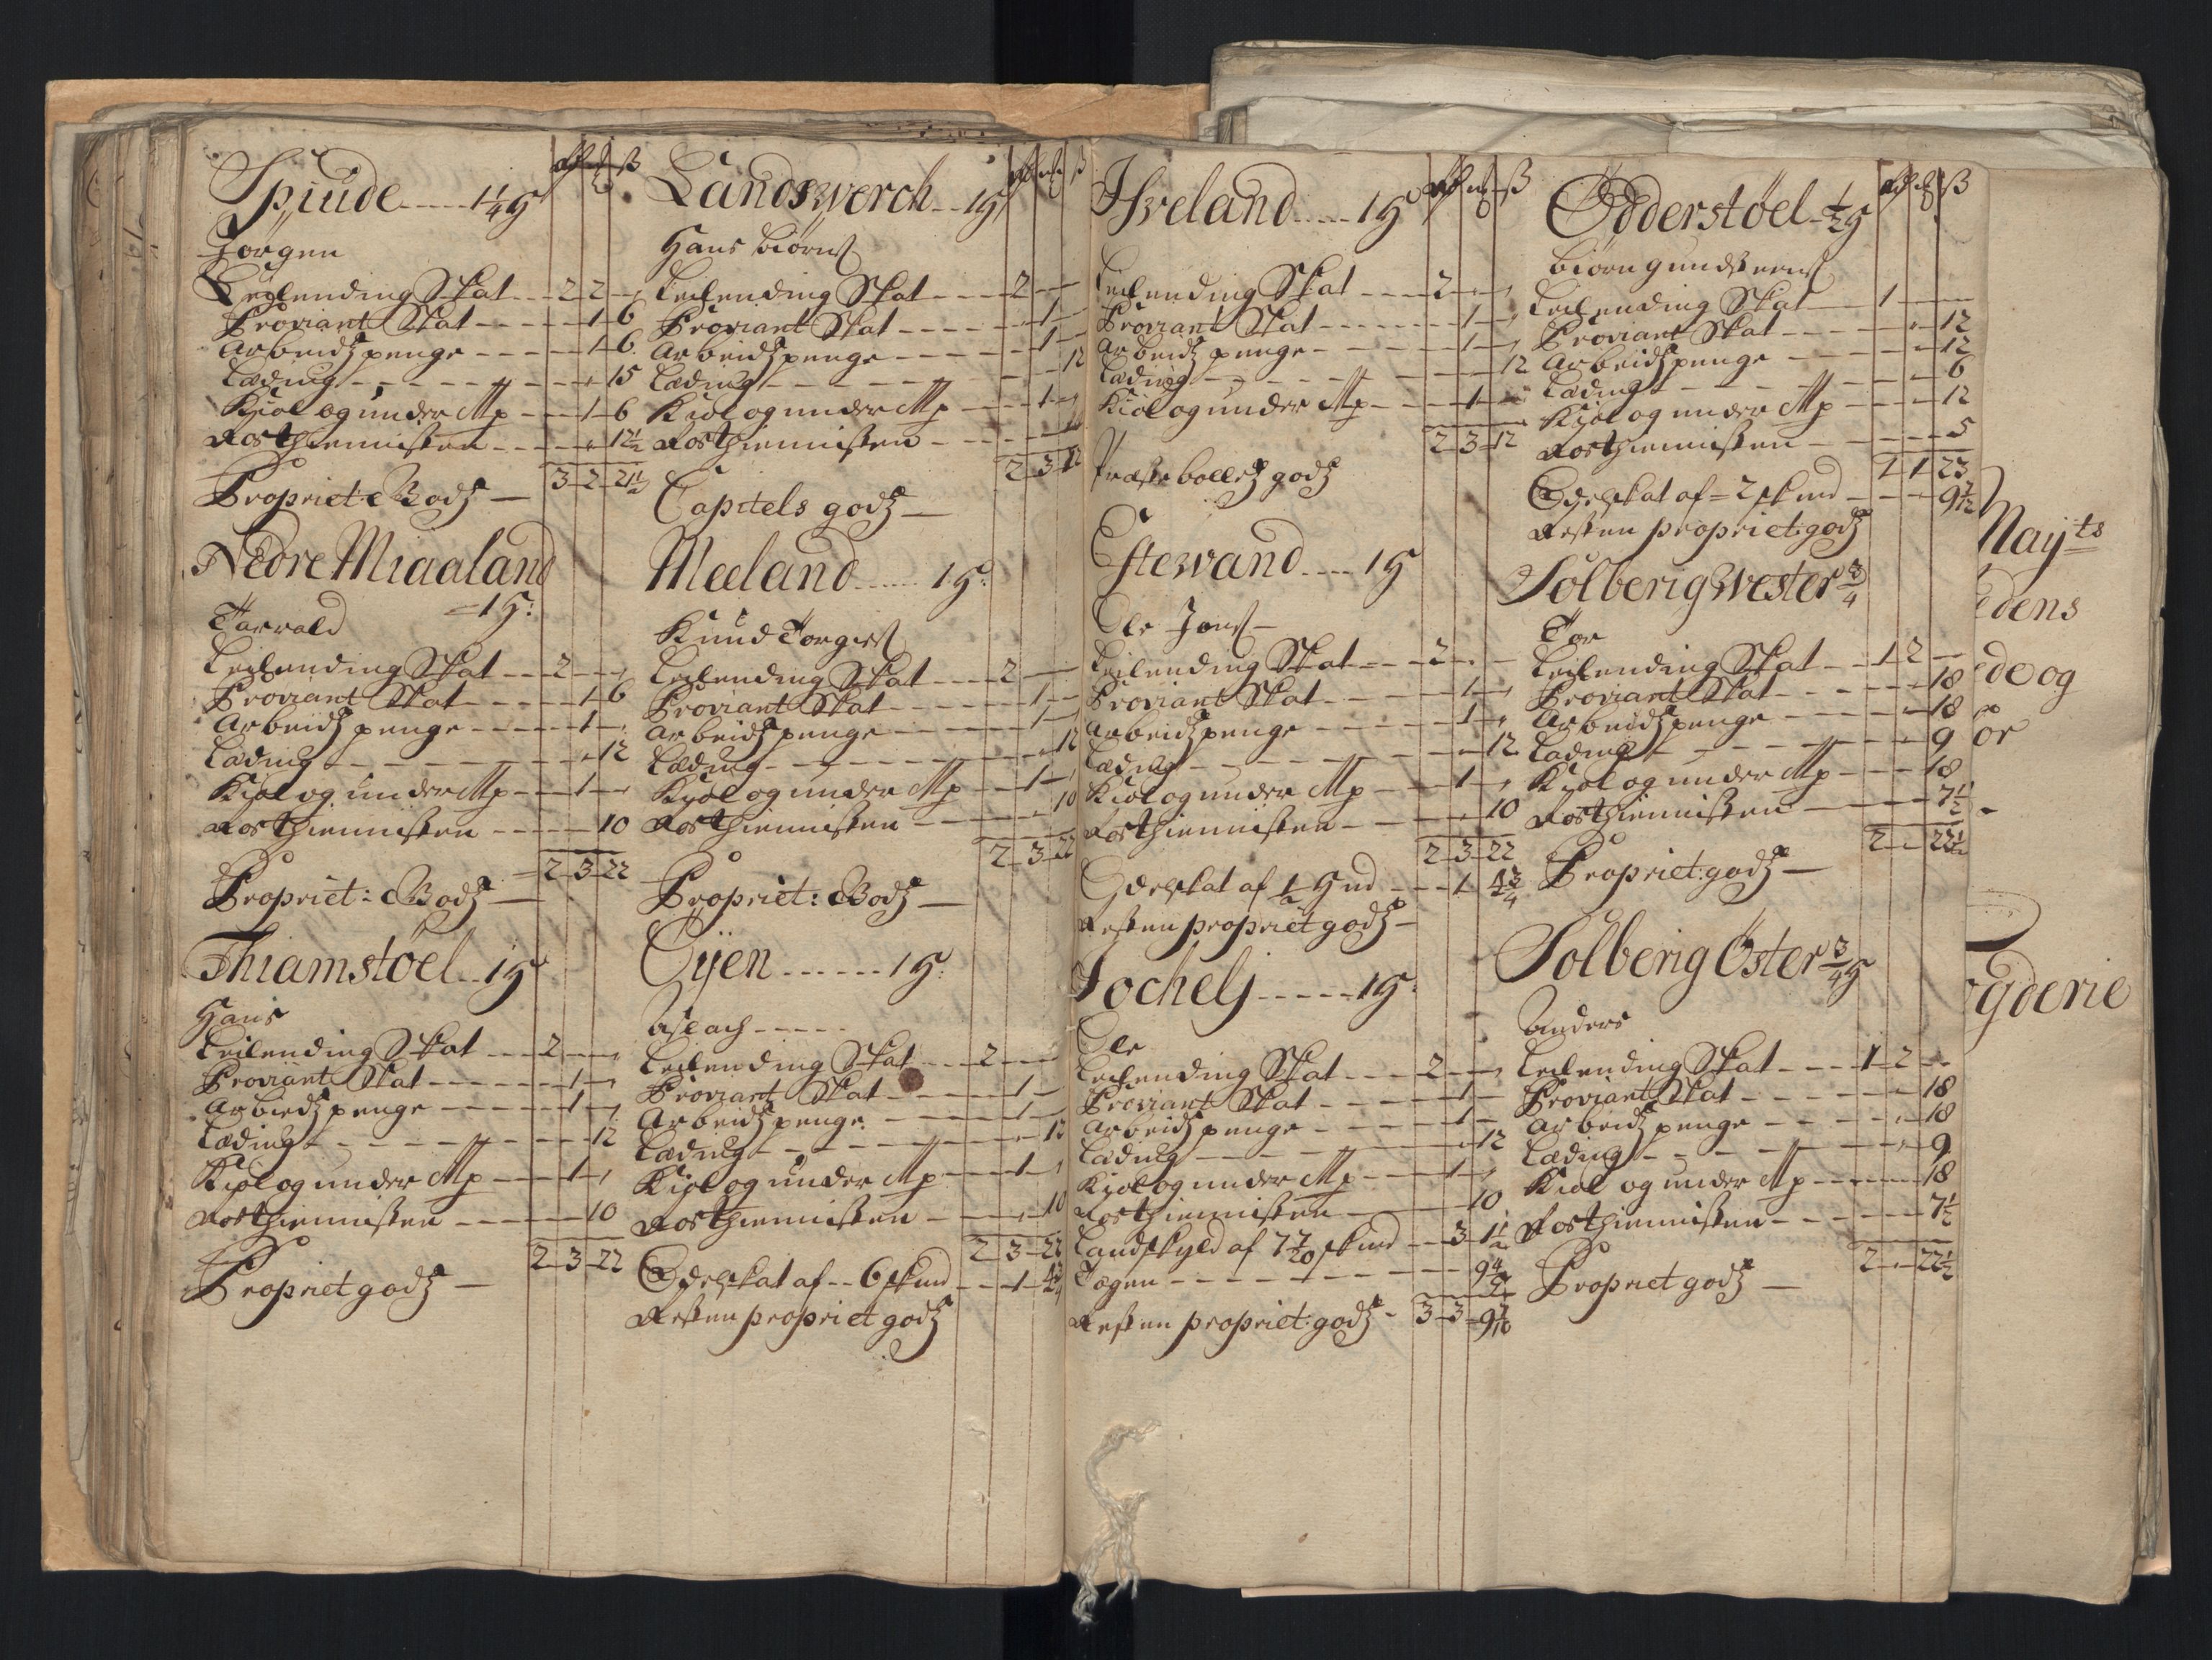 Spiude 1¼ H
Jörgen
Leilending Skat 2 2
Proviant Skat 1 6
Arbeidzpenge 1 6
Læding 15
Kiol og under Mp 1 6
Rosthiennisten 12½
3 2 21½
Propriet: Godz
Nedre Miaaland
1 H:
Tarrald
Leilending Skat 2
Proviant Skat 1 6
Arbeidzpenge 1
Læding 12
Kiol og under Mp 1
Rosthiennisten 10
2 3 22
Propriet: Godz
Thiamstöel 1 H
Hans
Leilending Skat 2
Proviant Skat 1
Arbiedzpenge 1
Læding 12
Kiol og under Mp 1
Rosthiennisten 10
2 3 22
Propriet godz
Landswerch 1 H
Hans Biörns
Leilending Skat 2
Proviant Skat 1
Arbeidzpenge 1
Læding 12
Kiol og under Mp 1
Rosthiennisten
2 3 12
Capitels godz
Meeland 1 H:
Knud Torgiers
Leilending Skat 2
Proviant Skat 1
Arbeidzpenge 1
Læding 12
Kiol og under Mp 1
Rosthiennisten 10
2 3 22
Propriet: Godz
Öÿen 1 H:
Aslach
Leilending Skat 2
Proviant Skat 1
Arbeidzpenge 1
Læding 12
Kiol og under Mp 1
Rosthiennisten 10
2 3 22
Odelskat af 6 skind 1 4¾
Resten propriet godz
Hveland 1 H
Leilending Skat 2
Proviant Skat 1
Arbeidzpenge 1
Læding 12
Kiol og under Mp 1
2 3 12
Præstebollets godz
Estewand 1 H
Ole Jons
Leilending Skat 2
Proviant Skat 1
Arbeidzpenge 1
Læding 12
Kiol og under Mp 1
Rosthiennisten 10
2 3 22
Odelskat af ½ Hud 1 4¾
Resten propriet godz
Jochelj 1 H:
Ole
Leilending Skat 2
Proviant Skat 1
Arbeidzpenge 1
Læding 12
Kiol og under Mp 1
Rosthiennisten 10
Landskyld af 7 7/20 skind 3 1½
Tagen
Resten propriet: godz 3 3
Ödderstöel ½ H
Biörn Gundsteens
Leilending Skat 1
Proviant Skat 12
Arbeidzpenge 12
Læding 6
Kiol og under Mp 12
Rosthiennisten 5
1 1 23
Odelskat af 2 skind 9 7/12
Resten propriet: godz
Solberig Wester ¾
Tor
Leilending Skat 1 2
Proviant Skat 18
Arbeidzpenge 18
Læding 9
Kiol og under Mp 18
Rosthiennisten 7½
2 22½
Propriet: godz
Solberig Öster ¾ H
Anders
Leilending Skat 1 2
Proviant Skat 18
Arbeidzpenge 18
Læding 9
Kiol og under Mp 18
Rosthiennisten 7½
2 22½
Propriet godz
Mayts
edens
de og
or
gderie